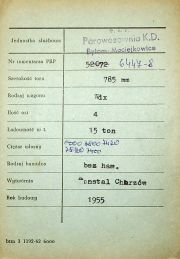 P.K.P.
Jednostka służbowa Parowozownia K.D.
Bytom Maciejkowice
Nr inwentarza PKP 52072 6447-8
Szerokość toru 785 mm
Rodzaj wagonu
Ilość osi 4
Ładowność w t. 15 ton
Ciężar własny 7420
7400
Rodzaj hamulca bez ham.
Wytwórnia Konstal Chorzów
Rok budowy 1955